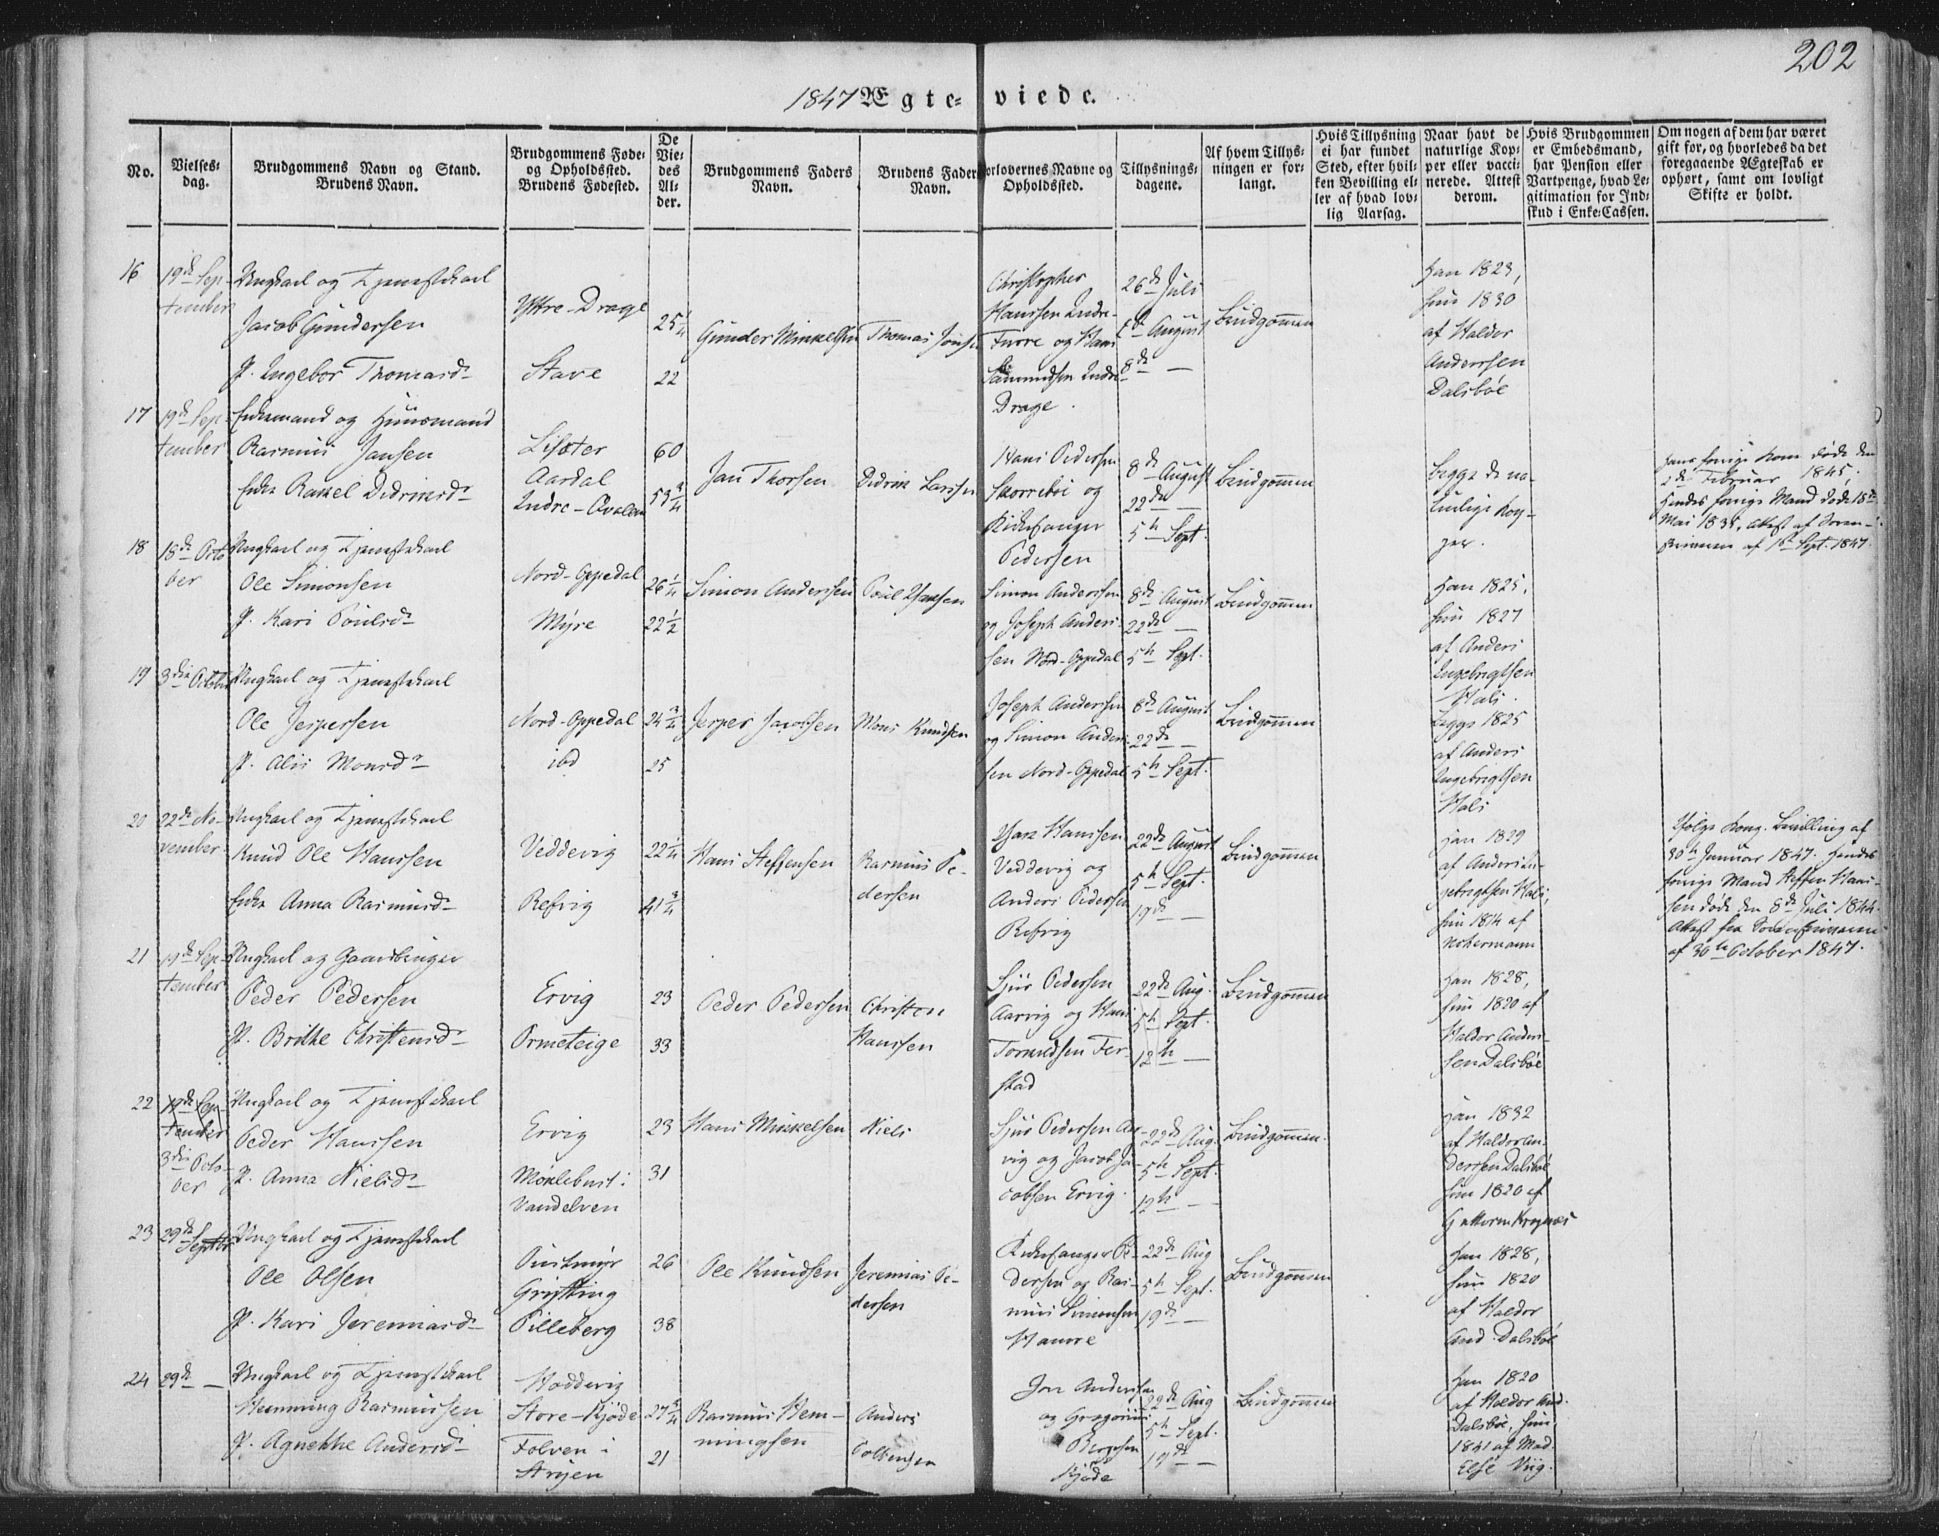 202
1847 Ægte- viede.
No.
Vielses-
dag.
Brudgommens Navn og Stand.
Brudens Navn.
Brudgommens Føde-
og Opholdssted.
Brudens Fødested.
De
Vie-
des
Al-
der.
Brudgommens Faders
Navn.
Brudens Faders
Navn.
Forlovernes Navne og
Opholdssted.
Tillysnings-
dagene.
Af hvem Tillys-
ningen er for-
langt.
Hvis Tillysning
ei har fundet
Sted, efter hvil-
ken Bevilling el-
ler af hvad lov-
lig Aarsag.
Naar havt de
naturlige Kop-
per eller vacci-
nerede. Attest
derom.
Hvis Brudgommen
er Embedsmand,
har Pension eller
Vartpenge, hvad Le-
gitimation for Ind-
skud i Enke-Cassen.
Om nogen af dem har været
gift før, og hvorledes da det
foregaaende Ægteskab er
ophørt, samt om lovligt
Skifte er holdt.
16
19de Sep-
tember
Ungkarl og Tjenestekarl
Jacob Gundersen
P. Ingebor Thomasdr
Yttre-Drage
Stave
25 1/4
22
Gunder Minkelsen
Thomas Jonsen
Christopher
Hanssen Indre-
Furre og Hans
Samundsen Indre-
Drage.
26de Juli
August
8de —
Brudgommen
Han 1823,
hun 1830
af Haldor
Anderssen
Dalsbøe
17
19de Sep-
tember
Enkemand og Huusmand
Rasmus Jansen
Enke Rakel Didriksdr
Lisæter
Aardal
Indre-
60
53 3/4
Jan Thorsen
Didrik Larssen
Hans Pedersen
Skorrebøe og
Kirkesanger
Pedersen
8de August
22de —
5te Sept.
Brudgommen
Begge de na-
turlige Kop-
per.
Hans forrige Kone døde den
Februar 1845,
Hendes forrige Mand døde 18de
Mai 1838, Attest af Soren-
skriveren af 1ste Sept. 1847.
18
18de Octo-
ber
Ungkarl og Tjenestekarl
Ole Simonsen
P. Kari Poulsdr
Nord-Oppedal
Myre
26 1/4
22 1/2
Simon Anderssen
Poul
Simon Anderssen
og Joseph Anders-
sen Nord-Oppedal
8de August
22de —
5te Sept.
Brudgommen
Han 1825,
hun 1827
af Anders
Ingebrigtsen
Hals.
19
3die October
Ungkarl og Tjenestekarl
Ole Jespersen
P. Alis Monsdr
Nord-Oppedal
ibd
24 3/4
25
Jesper Jacobsen
Mons Knudsen
Joseph Anderssen
og Simon Anders-
sen Nord-Oppedal
8de August
22de —
5te Sept.
Brudgommen
Begge 1825
af Anders
Ingebrigtsen
Hals
20
22de No-
vember
Ungkarl og Tjenestekarl
Knud Ole Hanssen
Enke Anna Rasmusdr
Veddevig
Refvig
22 1/4
41 3/4
Hans Steffensen
Rasmus Pe-
dersen
Hanssen
Veddevig og
Anders Pedersen
Refvig
22de August
5te Sept.
19de —
Brudgommen
Han 1829
af Anders In-
gebrigtsen Hals,
hun 1814 af
Ifølge Kong. Bevilling af
30te Januar 1847. Hendes
forrige Mand Steffen Hans-
sen døde den 8de Juli 1844.
Attest fra Sorenskriveren
af 30te October 1847.
21
19de Sep-
tember
Ungkarl og Gaardbruger
Peder Pedersen
P. Brithe Christensdr
Ervig
Ormeteige
23
33
Peder Pedersen
Christen
Hanssen
Sjur Pedersen
Aarvig og Hans
Fer-
stad
22de Aug.
5te Sept.
12te —
Brudgommen
Han 1828,
hun 1820 af
Haldor Anders-
sen Dalsbøe
22
19de Sep-
tember
3die Octo-
ber
Ungkarl og Tjenestekarl
Peder Hanssen
P. Anna Nielsdr
Ervig
Møklebust i
Vandelven
23
31
Hans Minkelsen
Niels
Sjur Pedersen Aar-
vig og Jacob Ja-
cobsen Ervig.
22de Aug.
5te Sept.
12te —
Brudgommen.
Han 1832
af Haldor An-
derssen Dalsbøe
hun 1820 af
Guttorm
23
29de
Septbr
Ungkarl og Tjenestekarl
Ole Olsen
P. Kari Jeremiasdr
Pilleberg
26
38
Ole Knudsen
Jeremias Pe-
dersen
Kirkesanger Pe-
dersen og Ras-
mus Simonsen
Hamre
22de Aug
5te Sept.
19de —
Brudgommen
Han 1828,
hun 1820
af Haldor
And. Dalsbøe
24
29de —
Ungkarl og Tjenestekarl
Hemming Rasmussen
P. Agnethe Andersdr
Hoddevig
Store-Kjøde
Folven i
Stryen
27 3/4
21
Rasmus Hem-
mingsen
Anders
Jon Anderssen
og Gregorius
Kjøde
22de Aug
5te Sept.
19de —
Brudgommen
Han 1820
af Haldor And.
Dalsbøe, hun
1841 af Mad.
Else Viig.